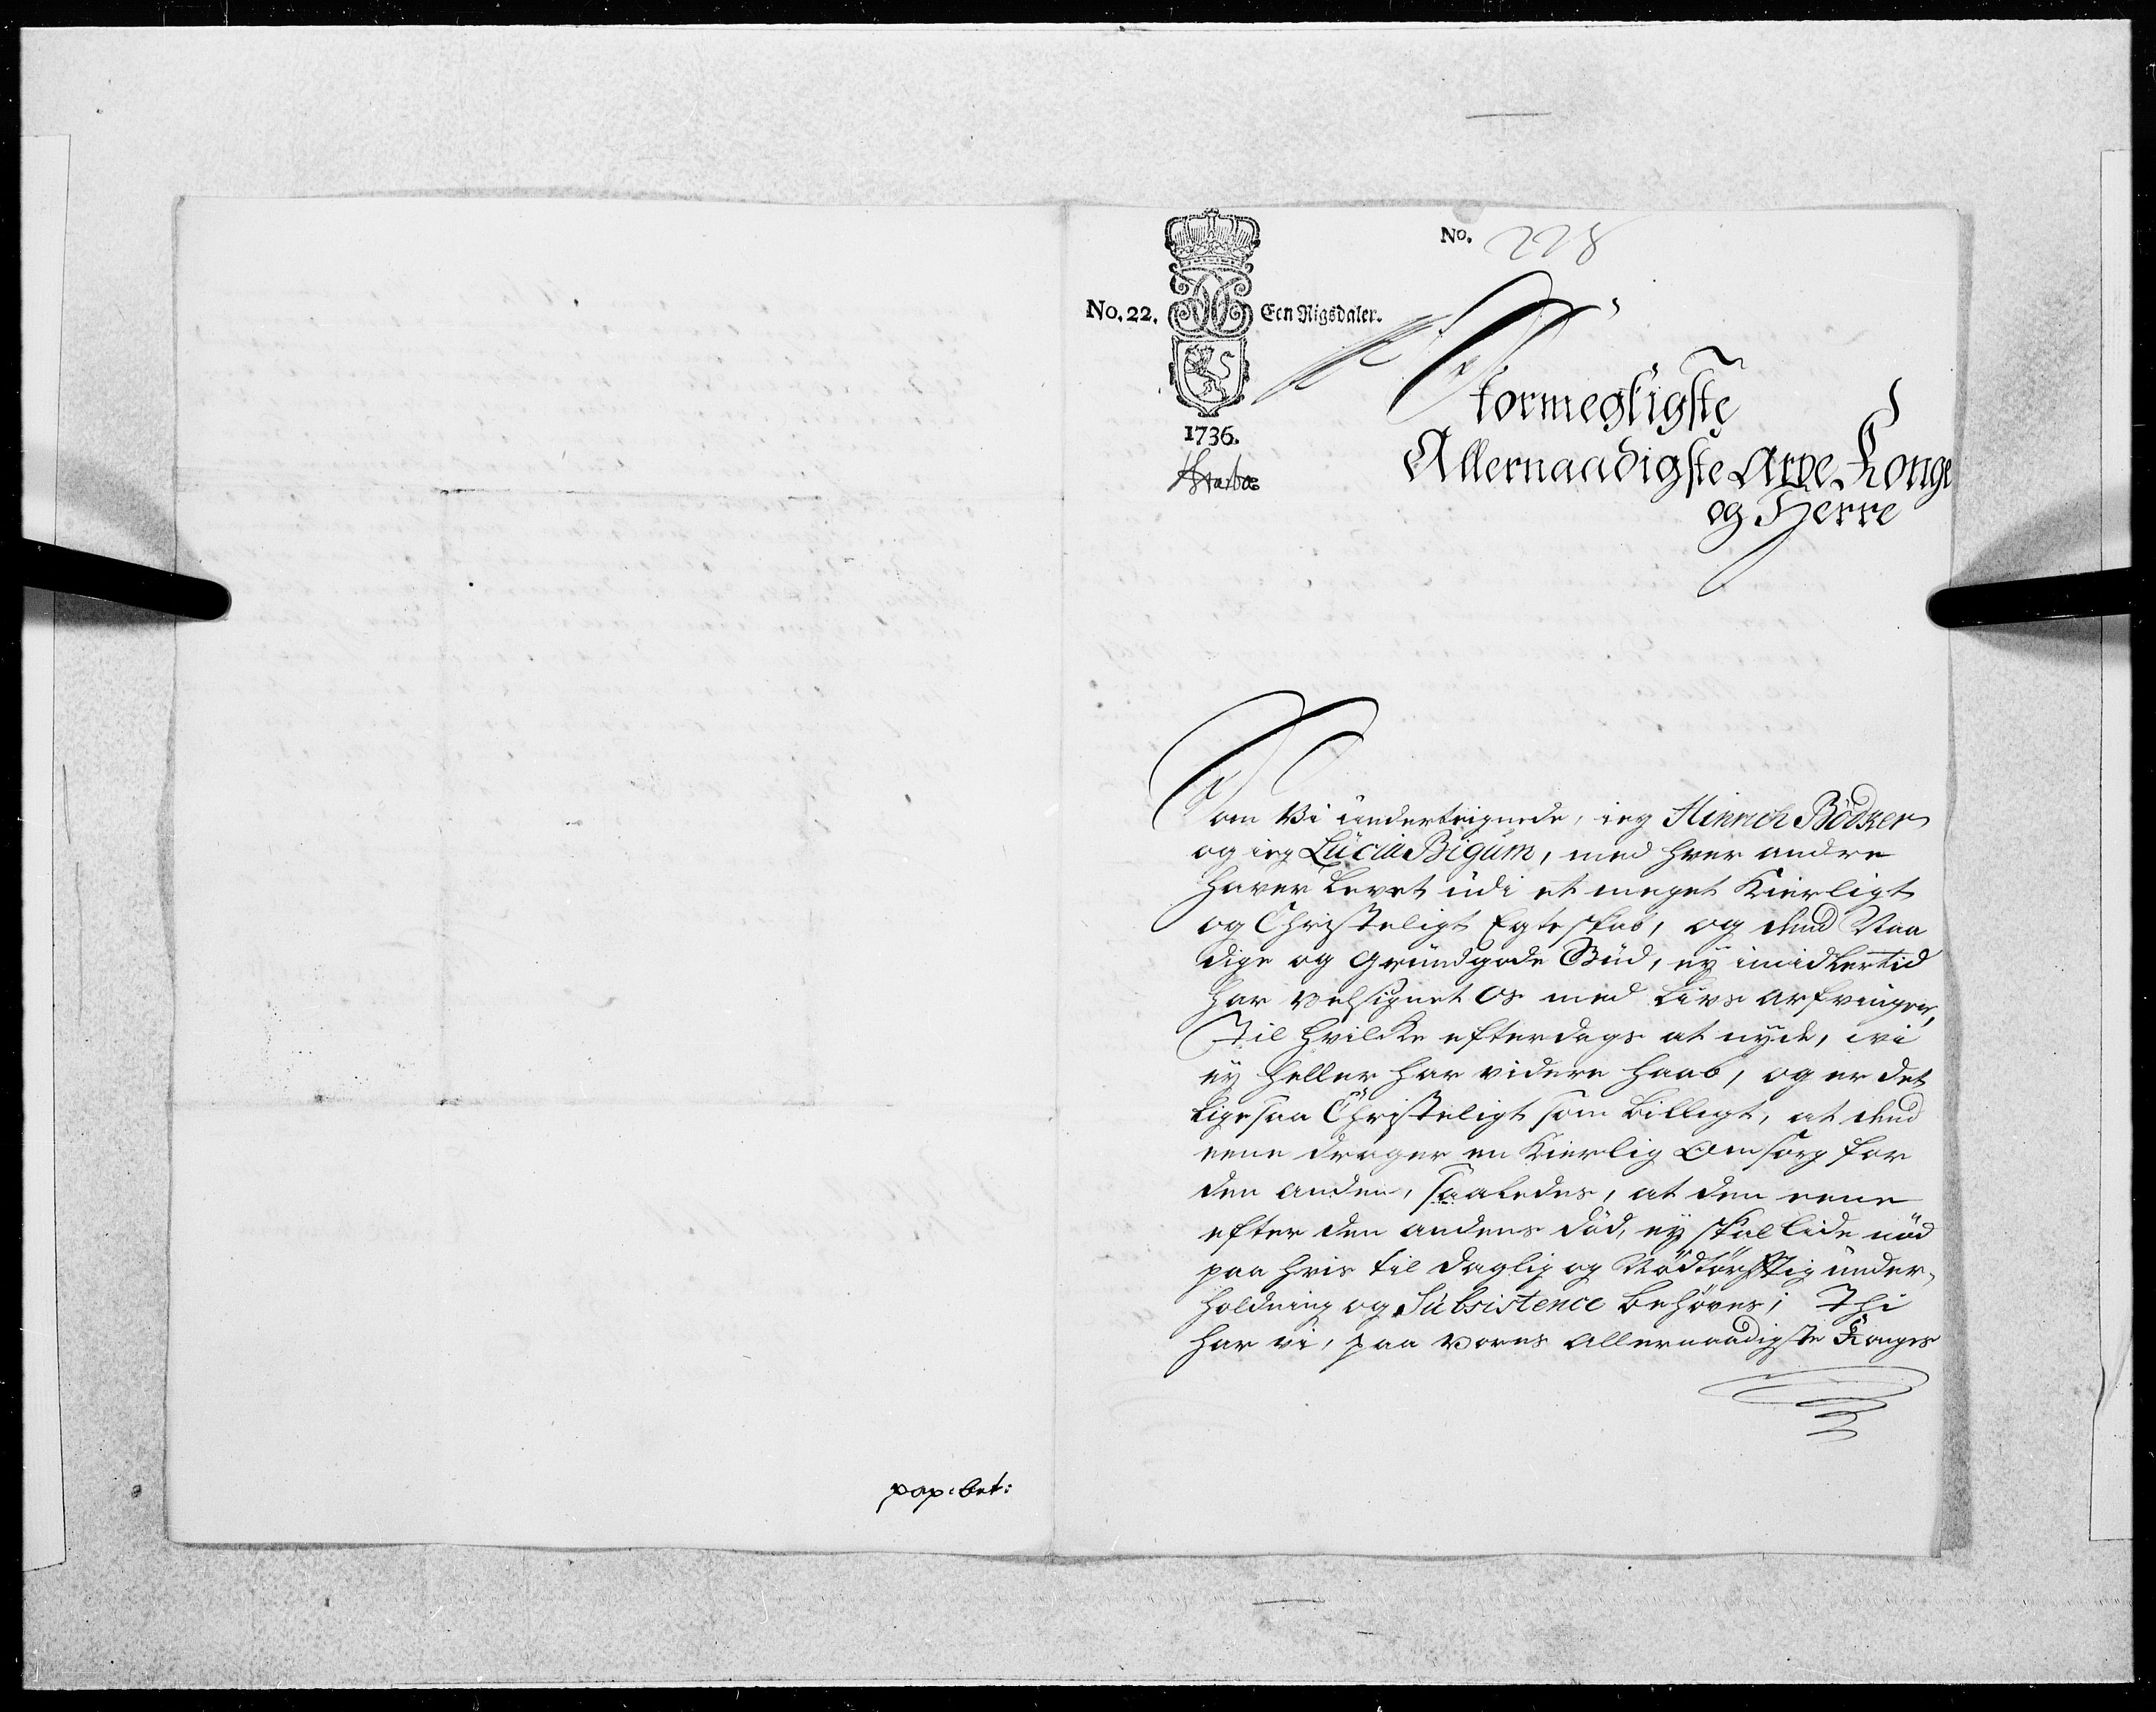 pap: bet:
No. 228
No. 22. Een Rigsdaler.
1736.
Stormegtigste
Allernaadigste Arve Konge
og Herre
Som Vi underteignede, ieg Hinrich Bödker
og ieg Lucia Bigum, med hver andre
haver Levet udi et meget Kierligt
og Christeligt Egteskab, og dend Naa
dige og Grundgode Gud, ey imidlertid
har velsignet Os med Livs arfvinger,
Til hvilcke efterdags at nyde, wi
ey heller har videre haab, og er det
Ligesaa Christeligt som billigt, at dend
eene drager en Kierlig Omsorg for
den anden, saaledes, at den eene
efter den andens död, ey skal lide nöd
paa hvis til daglig og Nödtörfftig under-
holdning og Subsistence behöves; Thi
har vi, paa vores Allernaadigste Konges